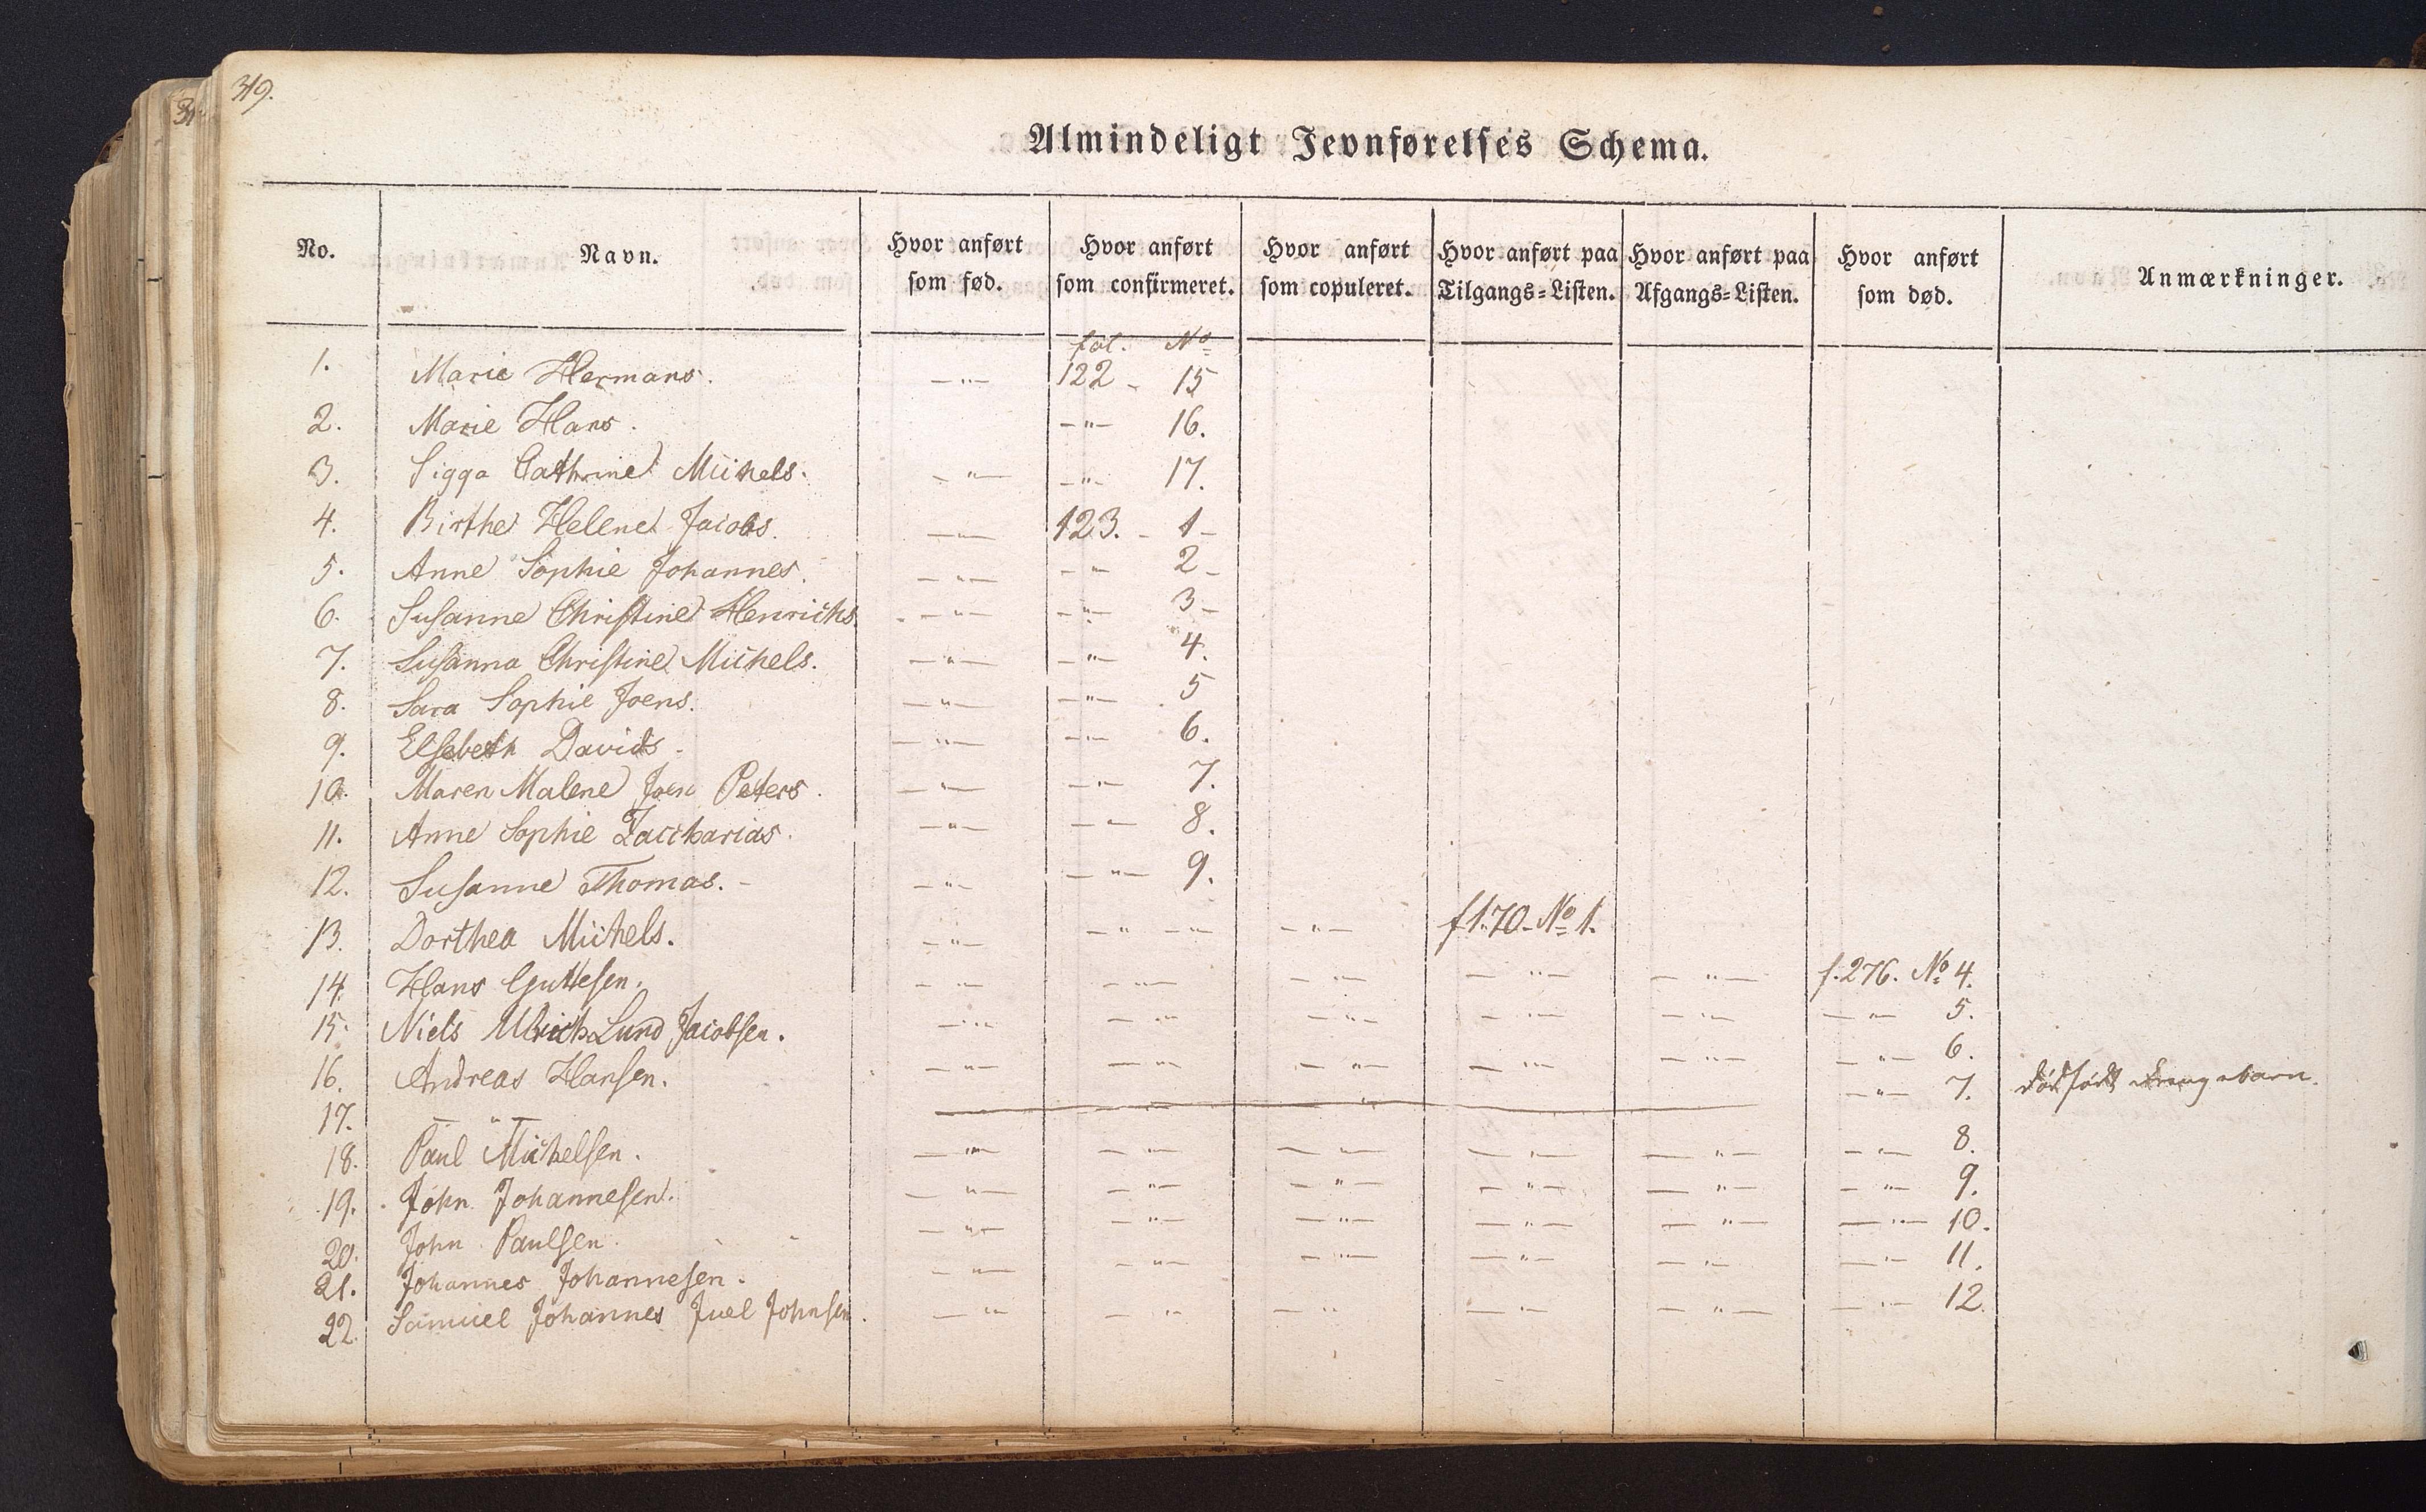 319.
Almindeligt Jevnførelses Schema.
No. Navn. Hvor anført som fød. Hvor anført som confirmeret. Hvor anført som copuleret. Hvor anført paa Tilgangs=Listen. Hvor anført paa Afgangs=Listen. Hvor anført som død. Anmærkninger.
fol. No
1. Marie Hermans. —"— 122 - 15
2. Marie Hans. —"— 16.
3. Sigga Cathrine Michels. —"— —"— 17.
4. Birthe Helene Jacobs. —"— 123. - 1-
5. Anne Sophie Johannes. —"— —"— 2-
6. Susanne Christine Henrichs. —"— —"— 3-
7. Susanna Christine Michels. —"— —"— 4.
8. Sara Sophie Joens. —"— —"— 5
9. Elsebeth Davids. —"— —"— 6.
10. Maren Malene Joen Peters. —"— —"— 7.
11. Anne Sophie Zaccharias. —"— —"— 8.
12. Susanne Thomas. - —"— —"— 9.
13. Dorthea Michels. —"— —"— —"— f 170. No 1.
14. Hans Guttesen. —"— —"— —"— —"— —"— f. 276. No 4.
15. Niels Ulrich Lund Jacobsen. —"— —"— —"— —"— —"— —"— 5.
16. Andreas Hansen. —"— —"— —"— —"— —"— —"— 6.
17. — " — —"— —"— 7. dødfødt Drengebarn.
18. Paul Michelsen. —"— —"— —"— —"— —"— —"— 8.
19. John Johannesen. —"— —"— —"— —"— —"— —"— 9.
20. John Paulsen. —"— —"— —"— —"— —"— —"— 10.
21. Johannes Johannesen. —"— —"— —"— —"— —"— —"— 11.
22. Samuel Johannes Juel Johnsen. —"— —"— —"— —"— —"— —"— 12.